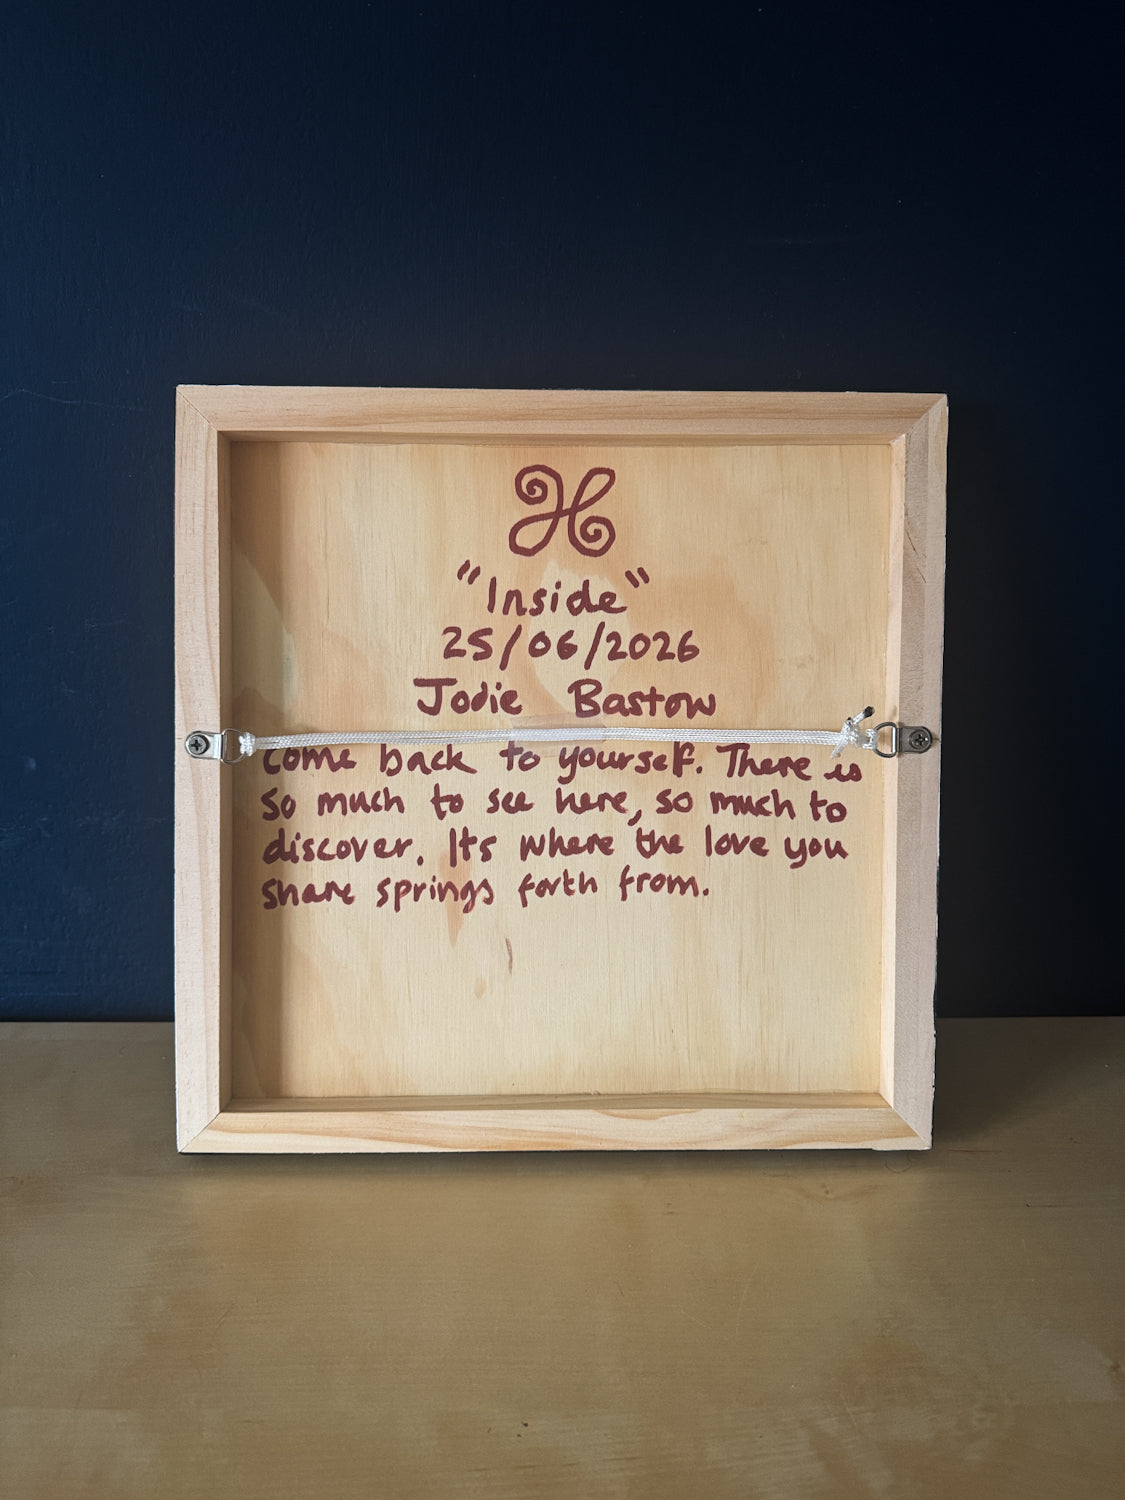 "Inside"
25/06/2026
Jodie Bastow
Come back to yourself. There is
so much to see here, so much to
discover. It's where the love you
share springs forth from.